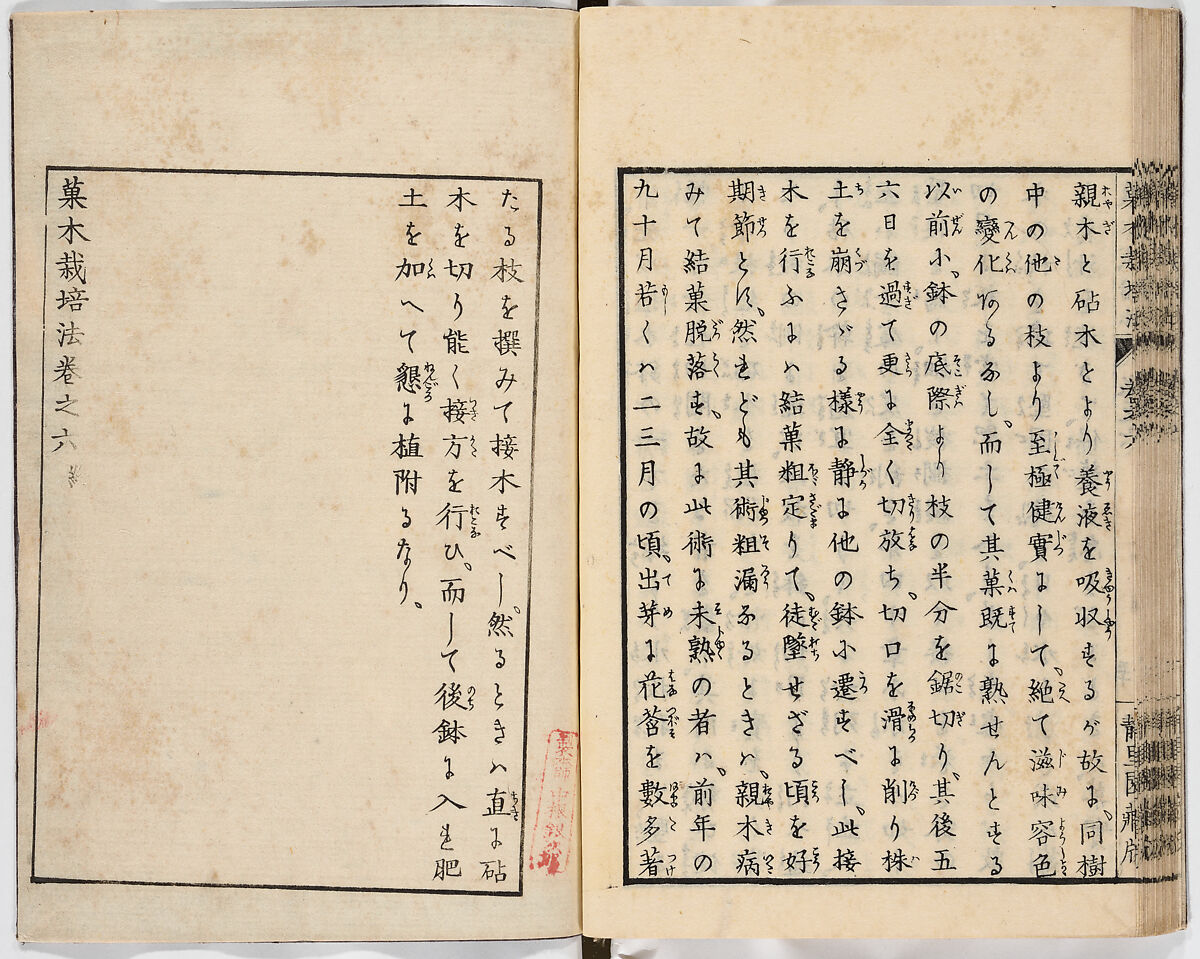 親木と砧木とより養液を吸収するが故に、同樹
中の他の枝より至極健實にして、絶て滋味容色
の變化あるなし、而して其菓既に熟せんとする
以前に、鉢の底際より枝の半分を鋸切り、其後五
六日を過て更に全く切放ち、切口を滑に削り株
土を崩さゞる様に静に他の鉢に遷すべし、此接
木を行ふには結菓粗定りて、徒墜せざる頃を好
期節とす、然れども其術粗漏なるときは、親木病
みて結菓脱落す、故に此術に未熟の者は、前年の
九十月若くは二三月の頃、出芽に花蕾を數多著
たる枝を撰みて接木すべし、然るときは直に砧
木を切り能く接方を行ひ、而して後鉢に入れ肥
土を加へて懇に植附るなり、
菓木栽培法卷之六
菓木栽培法
卷之六
靜里園藏片